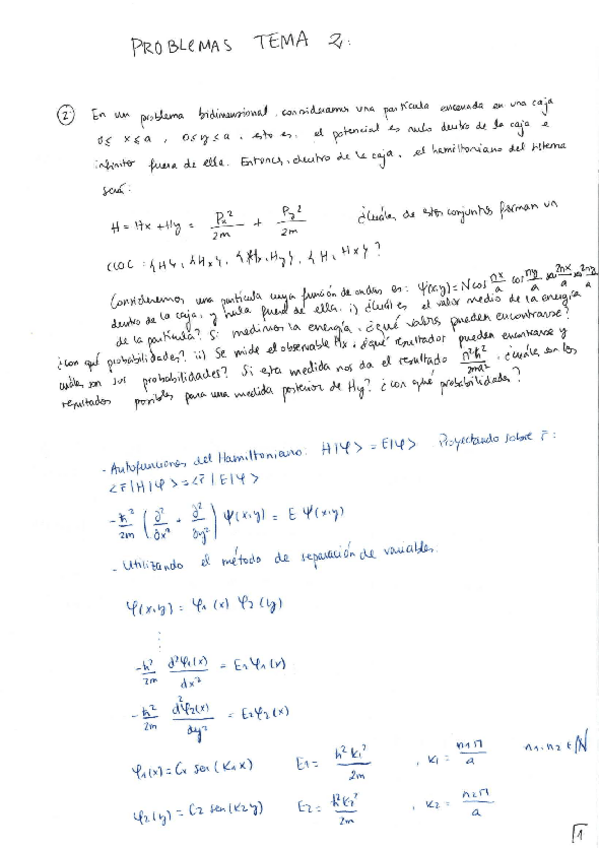 PROBLEMAS TEMA 2:
② En un problema bidimensional, consideramos una partícula encerrada en una caja
0≤ x ≤ a, 0≤ y ≤ a, esto es, el potencial es nulo dentro de la caja e
infinito fuera de ella. Entonces, dentro de la caja, el hamiltoniano del sistema
será:
H = Hx + Hy = Px²/2m + Py²/2m ¿Cuáles de estos conjuntos forman un
CCOC: {H}, {Hx}, {Hx, Hy}, {H, Hx}?
Consideremos una partícula cuya función de ondas es: Ψ(x,y) = N cos πx/a cos πy/a sen 2πx/a sen 2πy/a
dentro de la caja, y nula fuera de ella. i) ¿Cuál es el valor medio de la energía
de la partícula? Si medimos la energía, ¿qué valores pueden encontrarse?
¿con qué probabilidades? ii) Se mide el observable Hx, ¿qué resultados pueden encontrarse y
cuáles son sus probabilidades? Si esta medida nos da el resultado π²ħ²/2ma², ¿cuáles son los
resultados posibles para una medida posterior de Hy? ¿con qué probabilidades?
- Autofunciones del Hamiltoniano: H|φ> = E|φ> Proyectando sobre r̄:
<r̄|H|φ> = <r̄|E|φ>
-ħ²/2m (∂²/∂x² + ∂²/∂y²) φ(x,y) = E φ(x,y)
- Utilizando el método de separación de variables:
φ(x,y) = φ1(x) φ2(y)
⋮
-ħ²/2m d²φ1(x)/dx² = E1φ1(x)
-ħ²/2m d²φ2(x)/dy² = E2φ2(x)
φ1(x) = C1 sen(k1x) E1 = ħ²k1²/2m , k1 = n1π/a n1, n2 ∈ ℕ
φ2(y) = C2 sen(k2y) E2 = ħ²k2²/2m , k2 = n2π/a
1